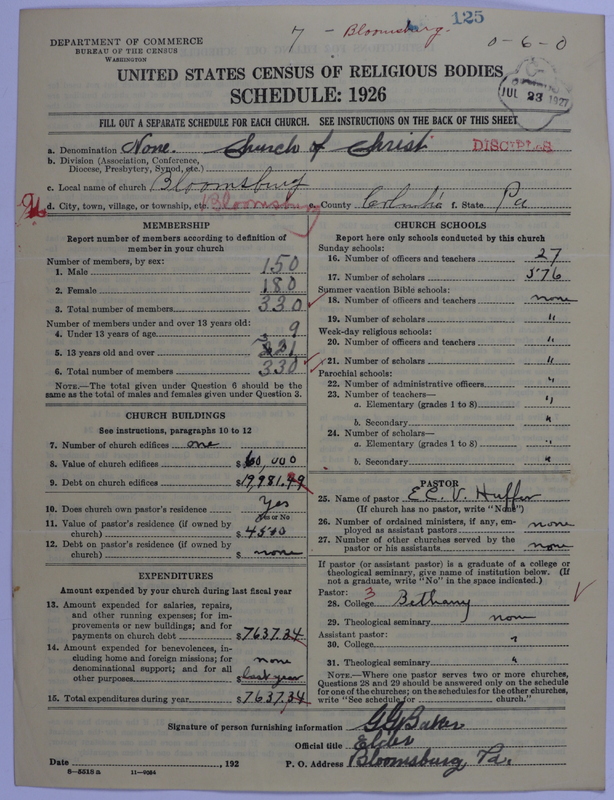 7 - Bloomsburg. 125
DEPARTMENT OF COMMERCE
BUREAU OF THE CENSUS
WASHINGTON
0-6-0
UNITED STATES CENSUS OF RELIGIOUS BODIES
SCHEDULE: 1926
JUL 23 1927
FILL OUT A SEPARATE SCHEDULE FOR EACH CHURCH. SEE INSTRUCTIONS ON THE BACK OF THIS SHEET
a. Denomination None. Church of Christ DISCIPLES
b. Division (Association, Conference,
Diocese, Presbytery, Synod, etc.)
c. Local name of church Bloomsburg
d. City, town, village, or township, etc. Bloomsburg e. County Columbia f. State Pa
MEMBERSHIP
Report number of members according to definition of
member in your church
Number of members, by sex:
1. Male 150
2. Female 180
3. Total number of members 330
Number of members under and over 13 years old:
4. Under 13 years of age 9
5. 13 years old and over 321
6. Total number of members 330
NOTE.—The total given under Question 6 should be the
same as the total of males and females given under Question 3.
CHURCH BUILDINGS
See instructions, paragraphs 10 to 12
7. Number of church edifices one
8. Value of church edifices $ 60,000
9. Debt on church edifices $ 19,981.49
10. Does church own pastor's residence Yes
Yes or No
11. Value of pastor's residence (if owned by
church) $ 4500
12. Debt on pastor's residence (if owned by
church) $ none
EXPENDITURES
Amount expended by your church during last fiscal year
13. Amount expended for salaries, repairs,
and other running expenses; for im-
provements or new buildings; and for
payments on church debt $ 7637.34
14. Amount expended for benevolences, in-
cluding home and foreign missions; for
denominational support; and for all
other purposes none
$ last year
15. Total expenditures during year $ 7637.34
CHURCH SCHOOLS
Report here only schools conducted by this church
Sunday schools:
16. Number of officers and teachers 27
17. Number of scholars 576
Summer vacation Bible schools:
18. Number of officers and teachers none
19. Number of scholars "
Week-day religious schools:
20. Number of officers and teachers "
21. Number of scholars "
Parochial schools:
22. Number of administrative officers "
23. Number of teachers—
a. Elementary (grades 1 to 8) "
b. Secondary "
24. Number of scholars—
a. Elementary (grades 1 to 8) "
b. Secondary "
PASTOR
25. Name of pastor E.C.V. Huffer
(If church has no pastor, write "None")
26. Number of ordained ministers, if any, em-
ployed as assistant pastors none
27. Number of other churches served by the
pastor or his assistants none
If pastor (or assistant pastor) is a graduate of a college or
theological seminary, give name of institution below. (If
not a graduate, write "No" in the space indicated.)
Pastor: 3
28. College Bethany
29. Theological seminary none
Assistant pastor:
30. College "
31. Theological seminary "
NOTE.—Where one pastor serves two or more churches,
Questions 28 and 29 should be answered only on the schedule
for one of the churches; on the schedules for the other churches,
write "See schedule for church."
Signature of person furnishing information G G Baker
Official title Elder
Date , 192 P. O. Address Bloomsburg, Pa.
8-5518 a 11-9084